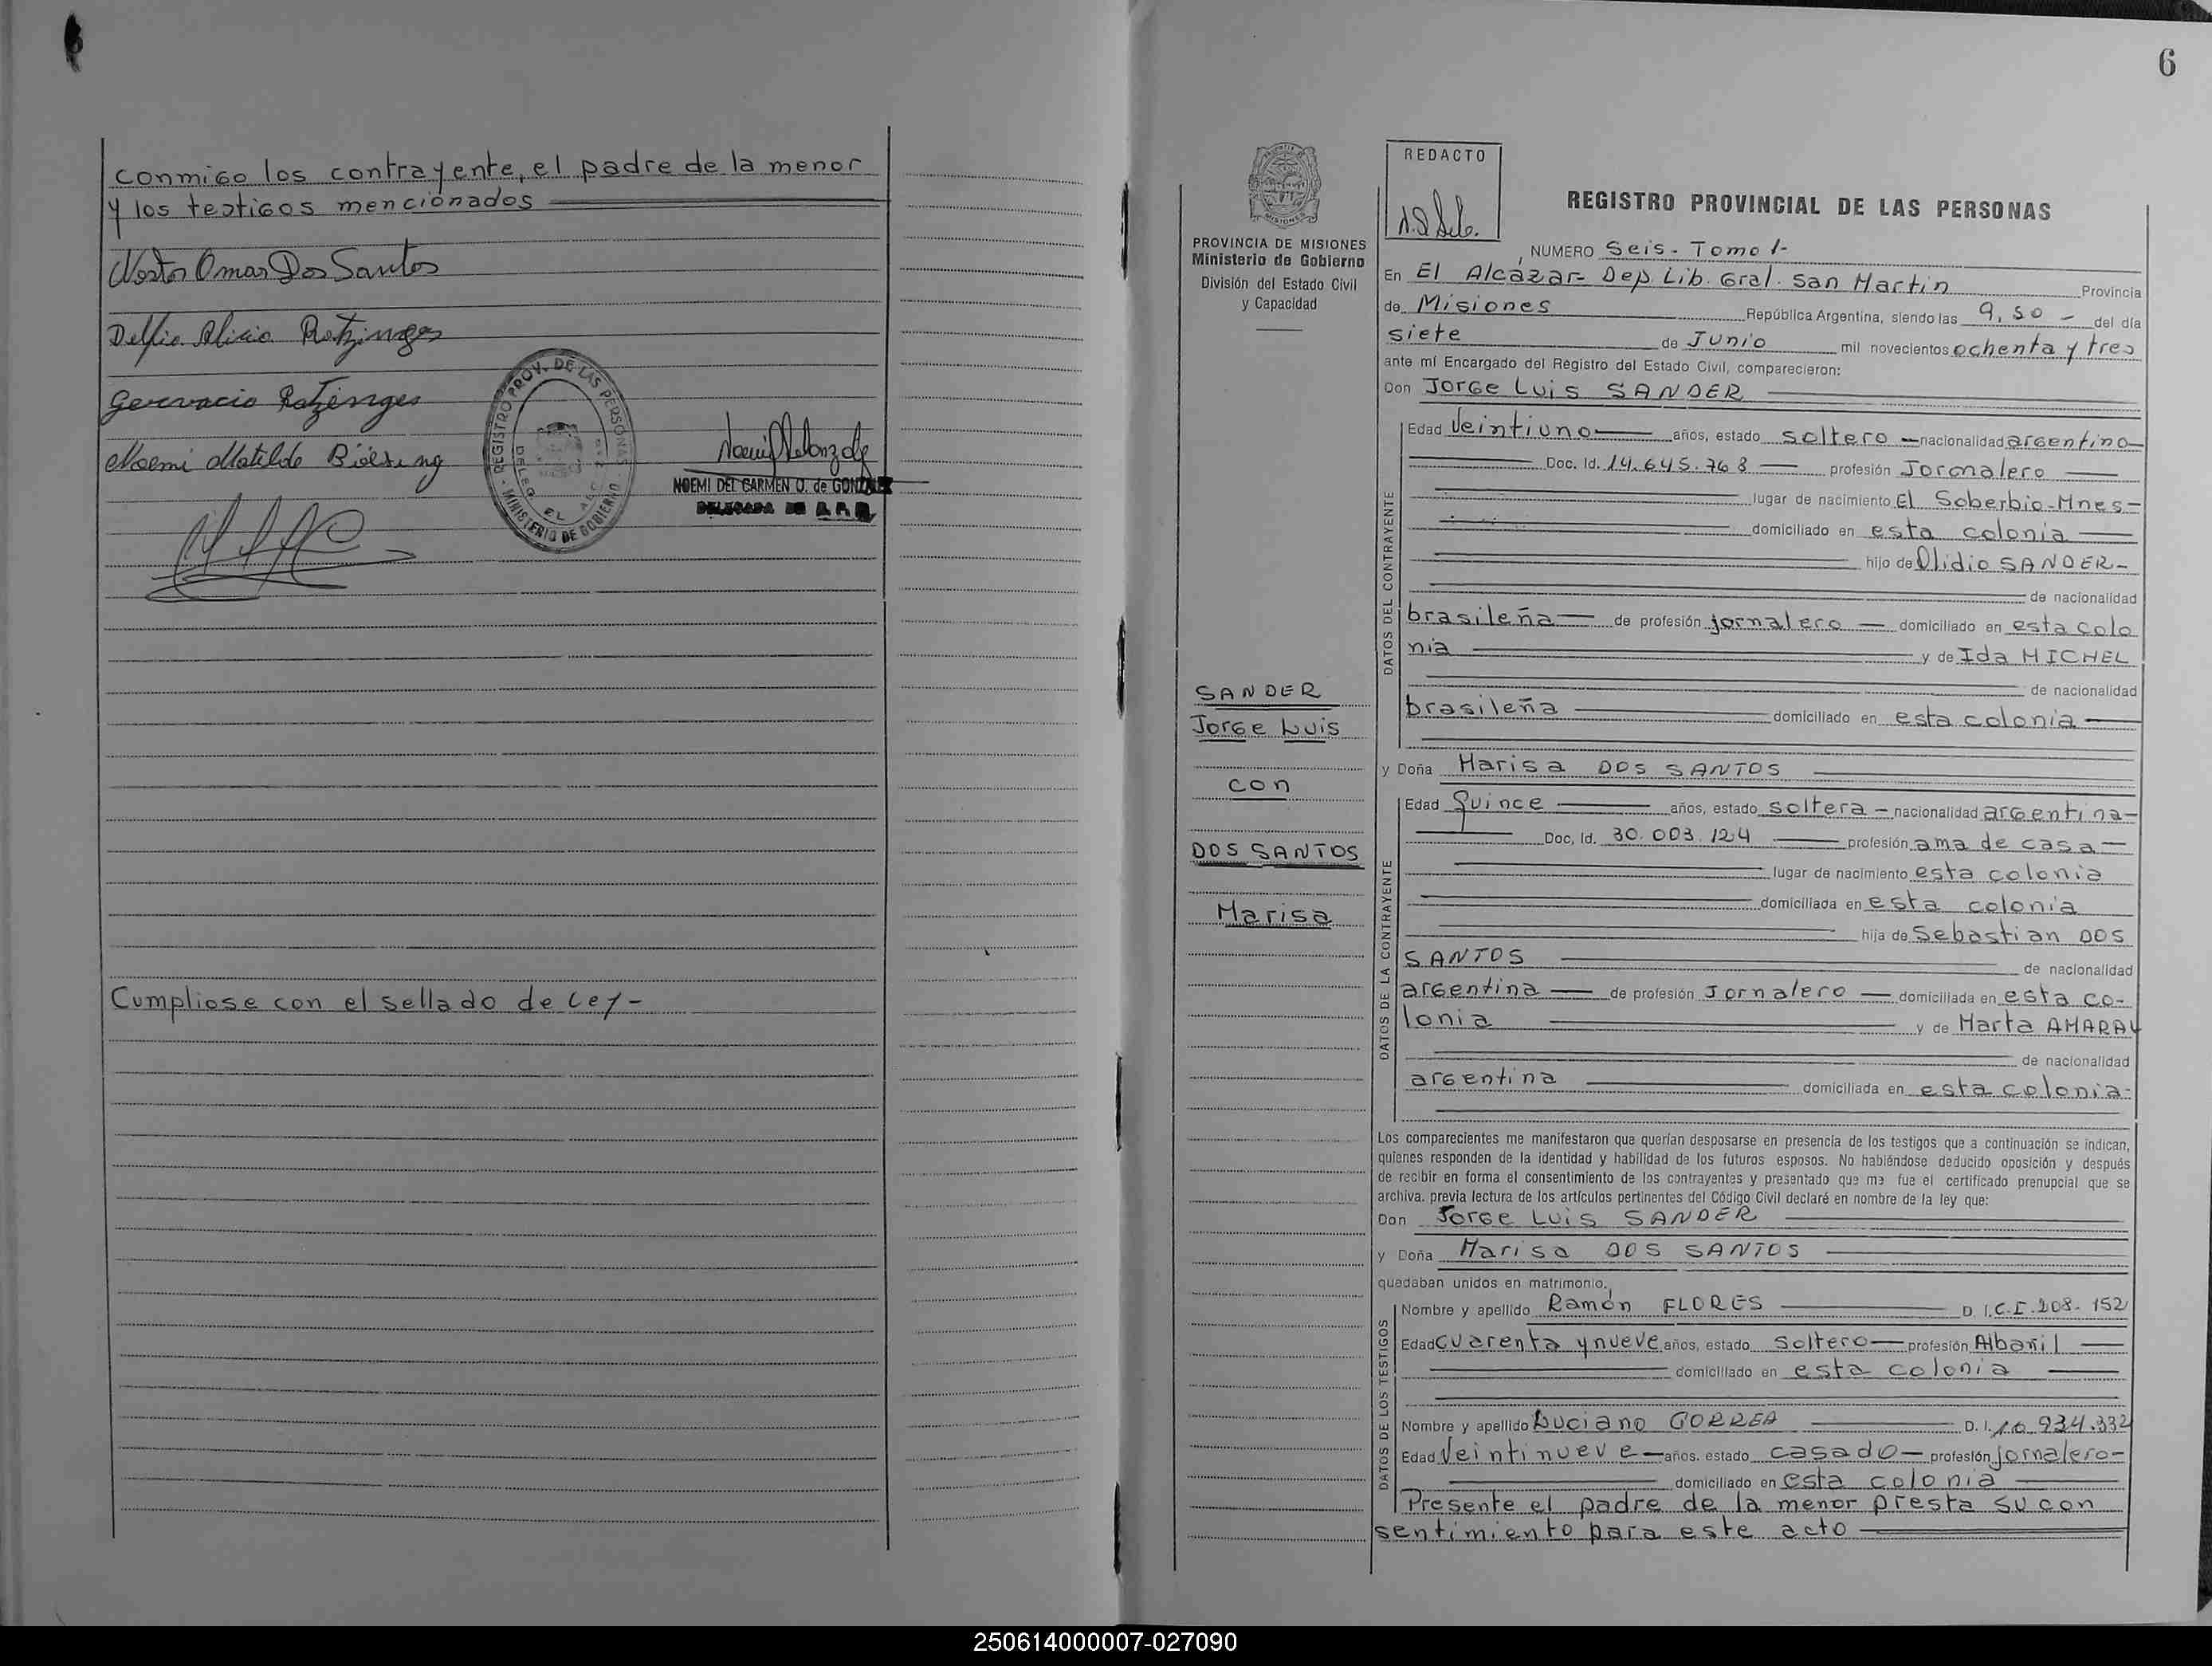 conmigo los contrayente, el padre de la menor
y los testigos mencionados
Nestor Omar Dos Santos
Delfia Alicia Ratzinges
Gervacio Ratzinges
Noemi Matilde
REGISTRO PROV. DE LAS PERSONAS - MINISTERIO DE GOBIERNO
DELEG. EL ALC
NOEMI DEL CARMEN O. de GONZALEZ
Cumpliose con el sellado de Ley-
6
REDACTO
PROVINCIA DE MISIONES
Ministerio de Gobierno
División del Estado Civil
y Capacidad
SANDER
Jorge Luis
con
DOS SANTOS
Marisa
REGISTRO PROVINCIAL DE LAS PERSONAS
NUMERO Seis- Tomo 1-
En El Alcázar- Dep. Lib. Gral. San Martin Provincia
de Misiones República Argentina, siendo las 9,50 - del día
siete de Junio mil novecientos ochenta y tres
ante mí Encargado del Registro del Estado Civil, comparecieron:
Don Jorge Luis SANDER
DATOS DEL CONTRAYENTE
Edad Veintiuno años, estado soltero - nacionalidad argentino-
Doc. Id. 14.645.768 profesión Jornalero
lugar de nacimiento El Soberbio-Mnes-
domiciliado en esta colonia
hijo de Olidio SANDER-
de nacionalidad
brasileña de profesión jornalero domiciliado en esta colo
nia y de Ida MICHEL
de nacionalidad
brasileña domiciliado en esta colonia
y Doña Marisa DOS SANTOS
DATOS DE LA CONTRAYENTE
Edad Quince años, estado soltera - nacionalidad argentina-
Doc, Id. 30.003.124 profesión ama de casa
lugar de nacimiento esta colonia
domiciliada en esta colonia
hija de Sebastian DOS
SANTOS de nacionalidad
argentina de profesión Jornalero domiciliada en esta co-
lonia y de Marta AMARAL
de nacionalidad
argentina domiciliada en esta colonia-
Los comparecientes me manifestaron que querían desposarse en presencia de los testigos que a continuación se indican,
quienes responden de la identidad y habilidad de los futuros esposos. No habiéndose deducido oposición y después
de recibir en forma el consentimiento de los contrayentes y presentado que me fue el certificado prenupcial que se
archiva, previa lectura de los artículos pertinentes del Código Civil declaré en nombre de la ley que:
Don Jorge Luis SANDER
y Doña Marisa DOS SANTOS
quedaban unidos en matrimonio.
DATOS DE LOS TESTIGOS
Nombre y apellido Ramón FLORES D. I. C.I. 208.152
Edad cuarenta y nueve años, estado soltero profesión Albañil
domiciliado en esta colonia
Nombre y apellido Luciano CORREA D. I. 10.934.332
Edad Veintinueve años, estado casado profesión jornalero-
domiciliado en esta colonia
Presente el padre de la menor presta su con
sentimiento para este acto
250614000007-027090